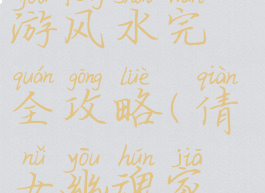 yóu fēng shuǐ wán
游风水完
quán gōng lüè qiàn
全攻略(倩
nǚ yōu hún jiā
女幽魂家